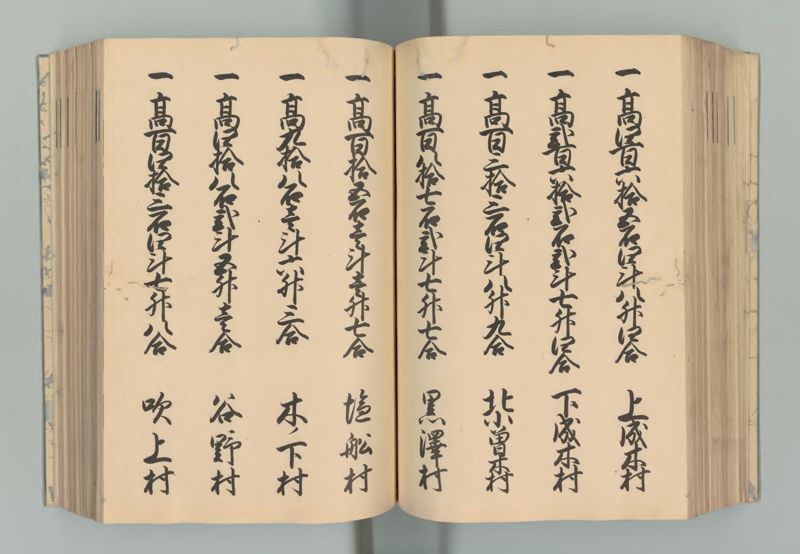 一 高四百六拾五石四斗八升四合 上成木村
一 高弐百六拾弐石弐斗七升四合 下成木村
一 高百三拾三石四斗八升九合 北小曽木村
一 高百八拾七石弐斗七升七合 黒澤村
一 高百拾五石壱斗壱升七合 塩船村
一 高九拾八石壱斗六升三合 木ノ下村
一 高四拾八石弐斗五升壱合 谷野村
一 高百四拾三石四斗七升八合 吹上村